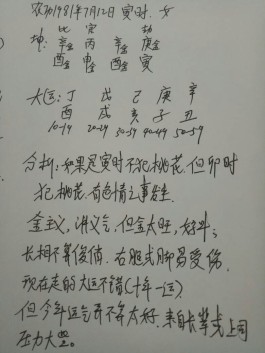 农历1981年7月12日 寅时. 女
比 官 劫
坤: 辛金 丙 辛金 庚金
酉金 申金 酉金 寅
大运: 丁 戊 己 庚 辛
酉 戌 亥 子 丑
10-19 20-29 30-39 40-49 50-59
分析: 如果是寅时不犯桃花. 但卯时
犯桃花. 有色情之事发生.
金主义, 讲义气, 但金太旺,
长相不算俊俏. 右腿或脚易受伤.
现在走的大运不错(十年一运).
但今年运气并不算太好. 来自长辈或上司
压力大些.